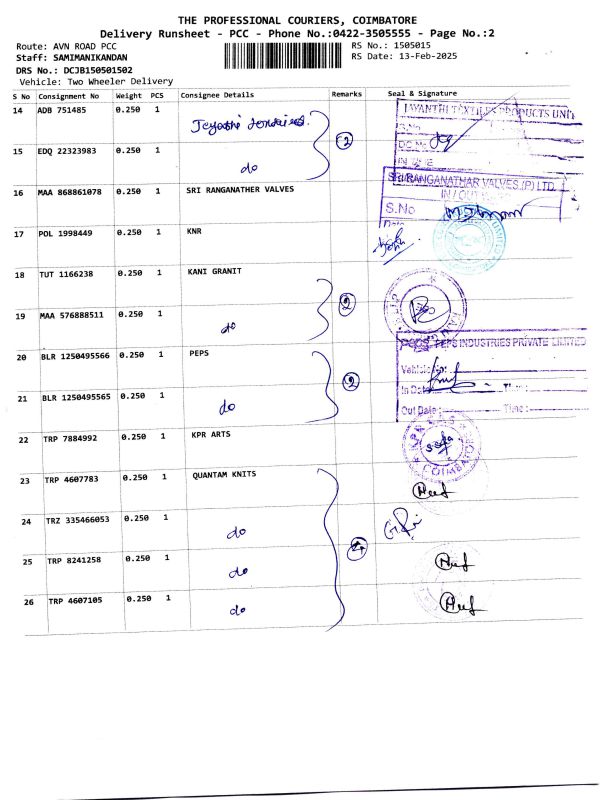 THE PROFESSIONAL COURIERS, COIMBATORE
Delivery Runsheet - PCC - Phone No.:0422-3505555 - Page No.:2
Route: AVN ROAD PCC RS No.: 1505015
Staff: SAMIMANIKANDAN RS Date: 13-Feb-2025
DRS No.: DCJB150501502
Vehicle: Two Wheeler Delivery
S No Consignment No Weight PCS Consignee Details Remarks Seal & Signature
14 ADB 751485 0.250 1
15 EDQ 22323983 0.250 1 do 2
TEXTILES PRODUCTS UNIT
16 MAA 868861078 0.250 1 SRI RANGANATHER VALVES
SRI RANGANATHAR VALVES (P) LTD.
S.No
17 POL 1998449 0.250 1 KNR
18 TUT 1166238 0.250 1 KANI GRANIT
19 MAA 576888511 0.250 1 do 2
20 BLR 1250495566 0.250 1 PEPS
PEPS INDUSTRIES PRIVATE LIMITED
Vehicle No:
In Date: Time:
21 BLR 1250495565 0.250 1 do 2
Out Date: Time:
22 TRP 7884992 0.250 1 KPR ARTS
COIMBATORE
23 TRP 4607783 0.250 1 QUANTAM KNITS
24 TRZ 335466053 0.250 1 do
25 TRP 8241258 0.250 1 do 4
26 TRP 4607105 0.250 1 do